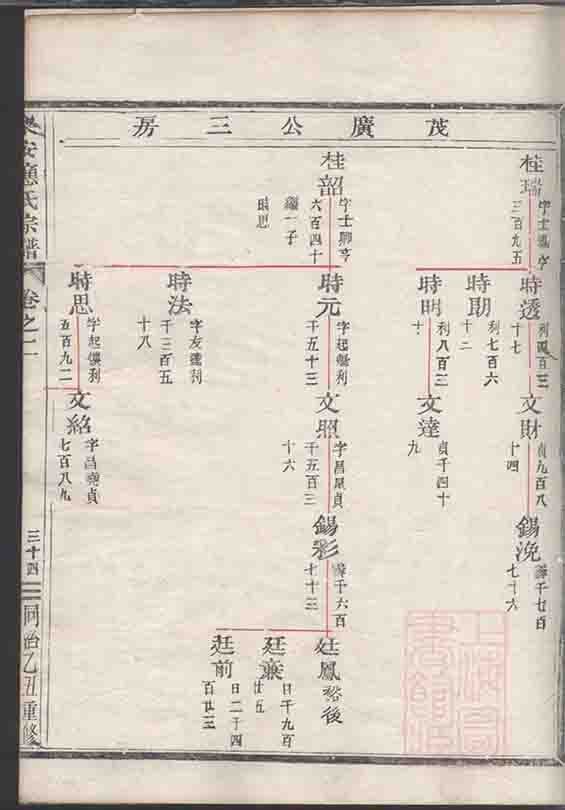 茂廣公三房
桂瑞
字士鳳亨
三百九五
時透
利四百三
十七
文財
貞九百八
十四
錫浼
千七百
七十六
時期
利七百六
十二
時明
利八百三
十
文達
貞千四十
九
桂韶
字士卿亨
六百四十
繼一子
時思
時元
字起
利
千五十三
文照
字昌
貞
千五百三
十六
錫彩
千六百
七十三
廷鳳
裕後
廷
日千九百
廿五
廷前
日二千四
百廿三
時法
字友
利
千三百五
十八
時思
字起
利
五百九二
文紹
字昌
貞
七百八九
樂安蔣氏宗譜
卷之二
三十四
同治乙丑重修
上海圖書館藏